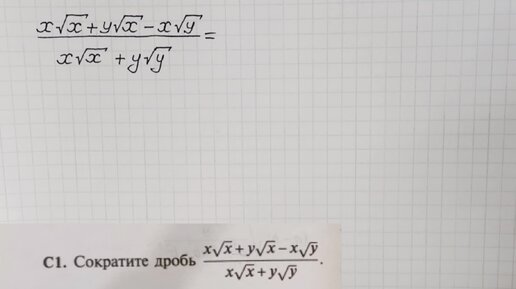 x√x + y√x − x√y
x√x + y√y
=
C1. Сократите дробь
x√x + y√x − x√y
x√x + y√y
.